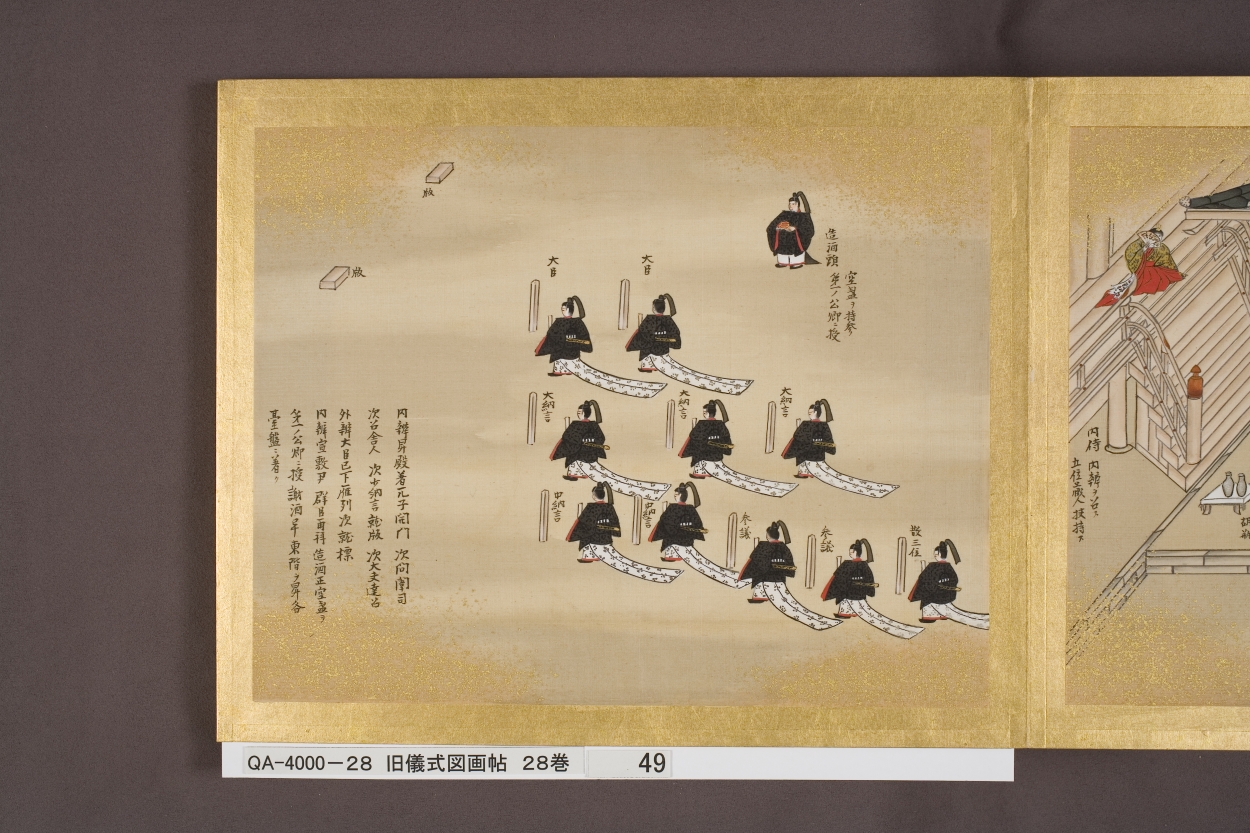 内侍 内辨ヲ召ス
立住蔵人扶持ス
造酒頭
空盞ヲ持参
第一ノ公卿ニ授
版
版
大臣
大臣
大納言
大納言
大納言
散三位
参議
参議
中納言
中納言
内辨昇殿着兀子開門 次問闈司
次召舎人 次少納言就版 次大夫達召
外辨大臣已下雁列次就標
内辨宣敷尹 群臣再拝造酒正空盞ヲ
第一ノ公卿ニ授謝酒畢東階ヲ昇各
臺盤ニ着ク
QA-4000-28 旧儀式図画帖 28巻 49